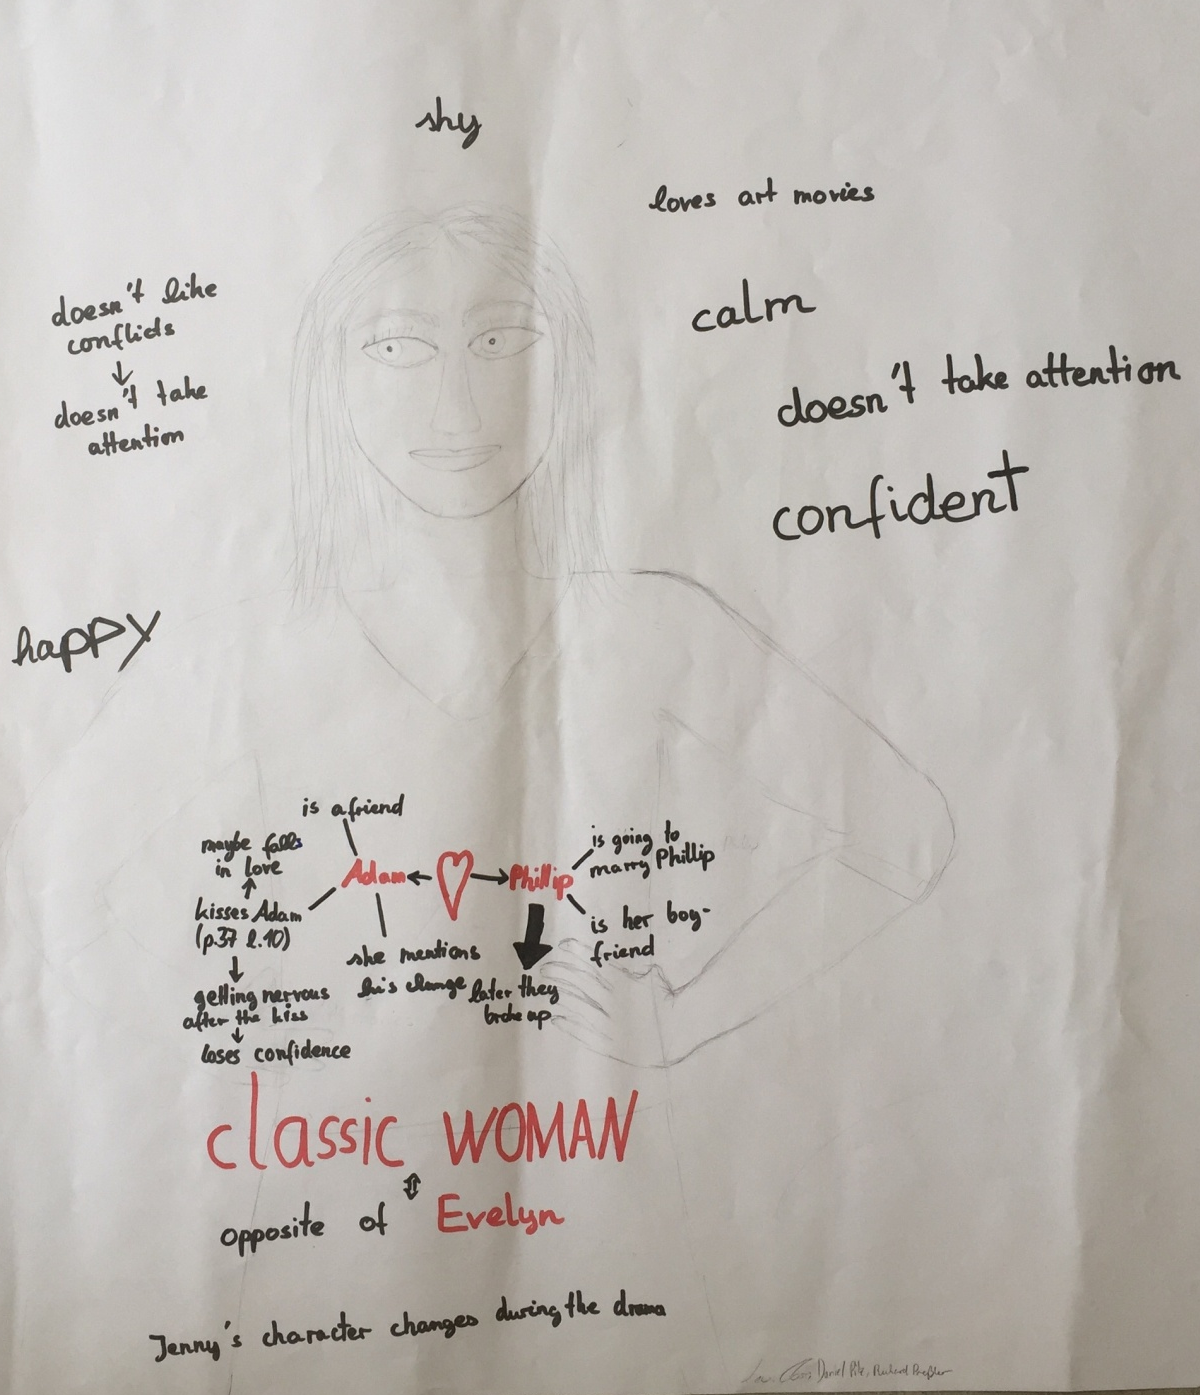 shy
loves art movies
doesn't like
conflicts
doesn't take
attention
calm
doesn't take attention
confident
happy
is a friend
maybe falls
in love
kisses Adam
(p.37 l.10)
getting nervous
after the kiss
loses confidence
Adam
she mentions
his change
Phillip
is going to
marry Phillip
is her boy-
friend
later they
broke up
classic WOMAN
opposite of Evelyn
Jenny's character changes during the drama
Daniel